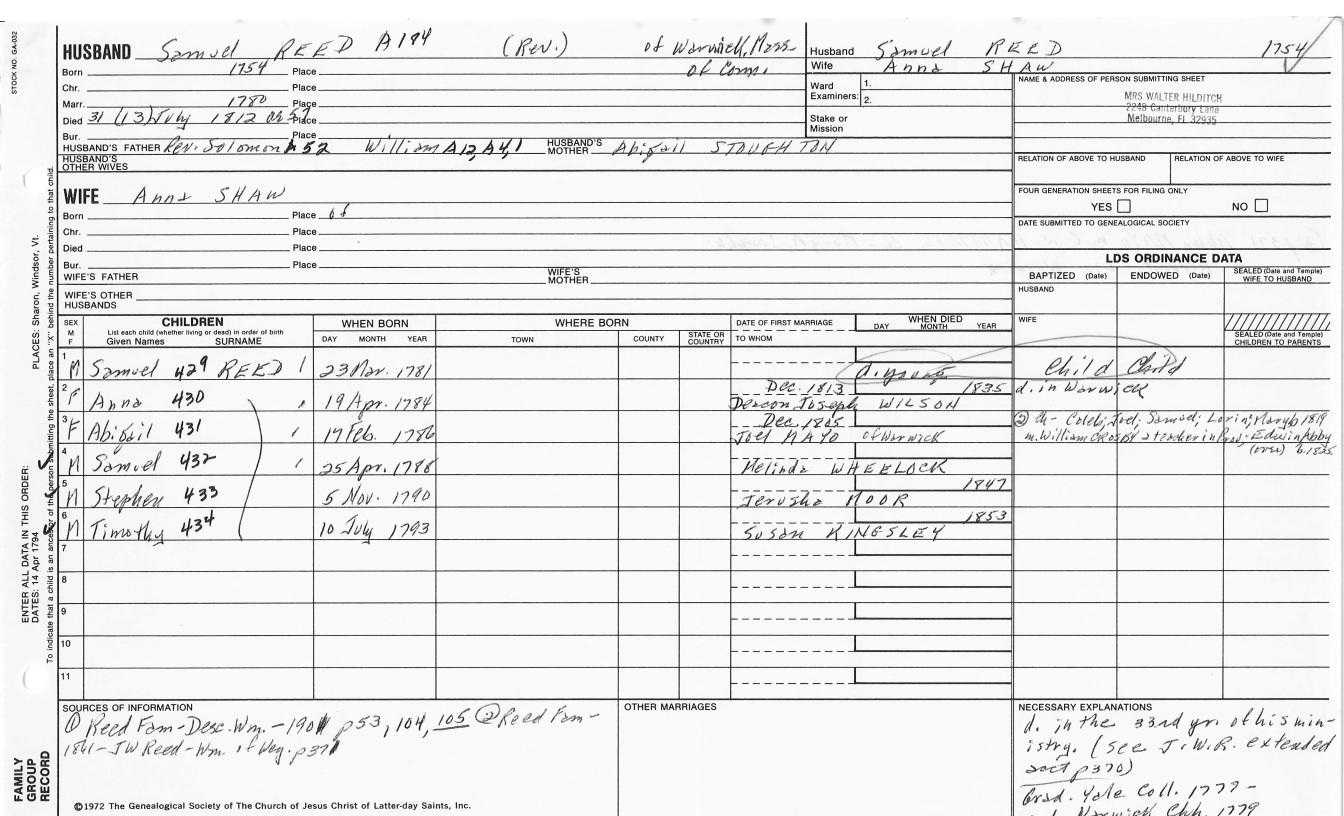 STOCK NO. GA-032
HUSBAND Samuel REED A194 (Rev.) of Warwick, Mass.
Born 1754 Place of Conn.
Chr. Place
Marr. 1780 Place
Died 31 (13) July 1812 Place
Bur. Place
HUSBAND'S FATHER Rev. Solomon A52 William A12, A4, 1 HUSBAND'S MOTHER Abigail STOUGHTON
HUSBAND'S OTHER WIVES
Husband Samuel REED 1754
Wife Anna SHAW
Ward Examiners: 1.
2.
Stake or Mission
NAME & ADDRESS OF PERSON SUBMITTING SHEET
MRS WALTER HILDITCH
2248 Canterbury Lane
Melbourne, FL 32935
RELATION OF ABOVE TO HUSBAND RELATION OF ABOVE TO WIFE
FOUR GENERATION SHEETS FOR FILING ONLY
YES NO
DATE SUBMITTED TO GENEALOGICAL SOCIETY
WIFE Anna SHAW
Born Place of
Chr. Place
Died Place
Bur. Place
WIFE'S FATHER WIFE'S MOTHER
WIFE'S OTHER HUSBANDS
LDS ORDINANCE DATA
BAPTIZED (Date) ENDOWED (Date) SEALED (Date and Temple) WIFE TO HUSBAND
HUSBAND
WIFE
SEALED (Date and Temple) CHILDREN TO PARENTS
SEX M F
CHILDREN
List each child (whether living or dead) in order of birth
Given Names SURNAME
WHEN BORN
DAY MONTH YEAR
WHERE BORN
TOWN COUNTY STATE OR COUNTRY
DATE OF FIRST MARRIAGE
TO WHOM
WHEN DIED
DAY MONTH YEAR
1 M Samuel 429 REED 23 Mar. 1781 d. young Child Child
2 F Anna 430 19 Apr. 1784 Dec. 1813 1835 d. in Warwick
Deacon Joseph WILSON
3 F Abigail 431 19 Feb. 1786 Dec. 1805
Joel MAYO of Warwick
② ch - Caleb; Joel; Samuel; Lorin; Mary b 1819
m. William CROSBY a teacher in; Edwin Abby
(over) b. 1825
4 M Samuel 432 25 Apr. 1788 Melinda WHEELOCK
5 M Stephen 433 5 Nov. 1790 1847
Jerusha MOOR
6 M Timothy 434 10 July 1793 1853
Susan KINGSLEY
7
8
9
10
11
SOURCES OF INFORMATION
① Reed Fam-Desc. Wm. - 1901 p53, 104, 105 ② Reed Fam-
1861-JW Reed-Wm. of Wey. p371
OTHER MARRIAGES
NECESSARY EXPLANATIONS
d. in the 33rd yr. of his min-
istry. (see J.W.R. extended
p370)
Grad. Yale Coll. 1777-
Warwick Chh. 1779
©1972 The Genealogical Society of The Church of Jesus Christ of Latter-day Saints, Inc.
FAMILY GROUP RECORD
ENTER ALL DATA IN THIS ORDER:
DATES: 14 Apr 1794 PLACES: Sharon, Windsor, Vt.
To indicate that a child is an ancestor of the person submitting the sheet, place an "X" behind the number pertaining to that child.